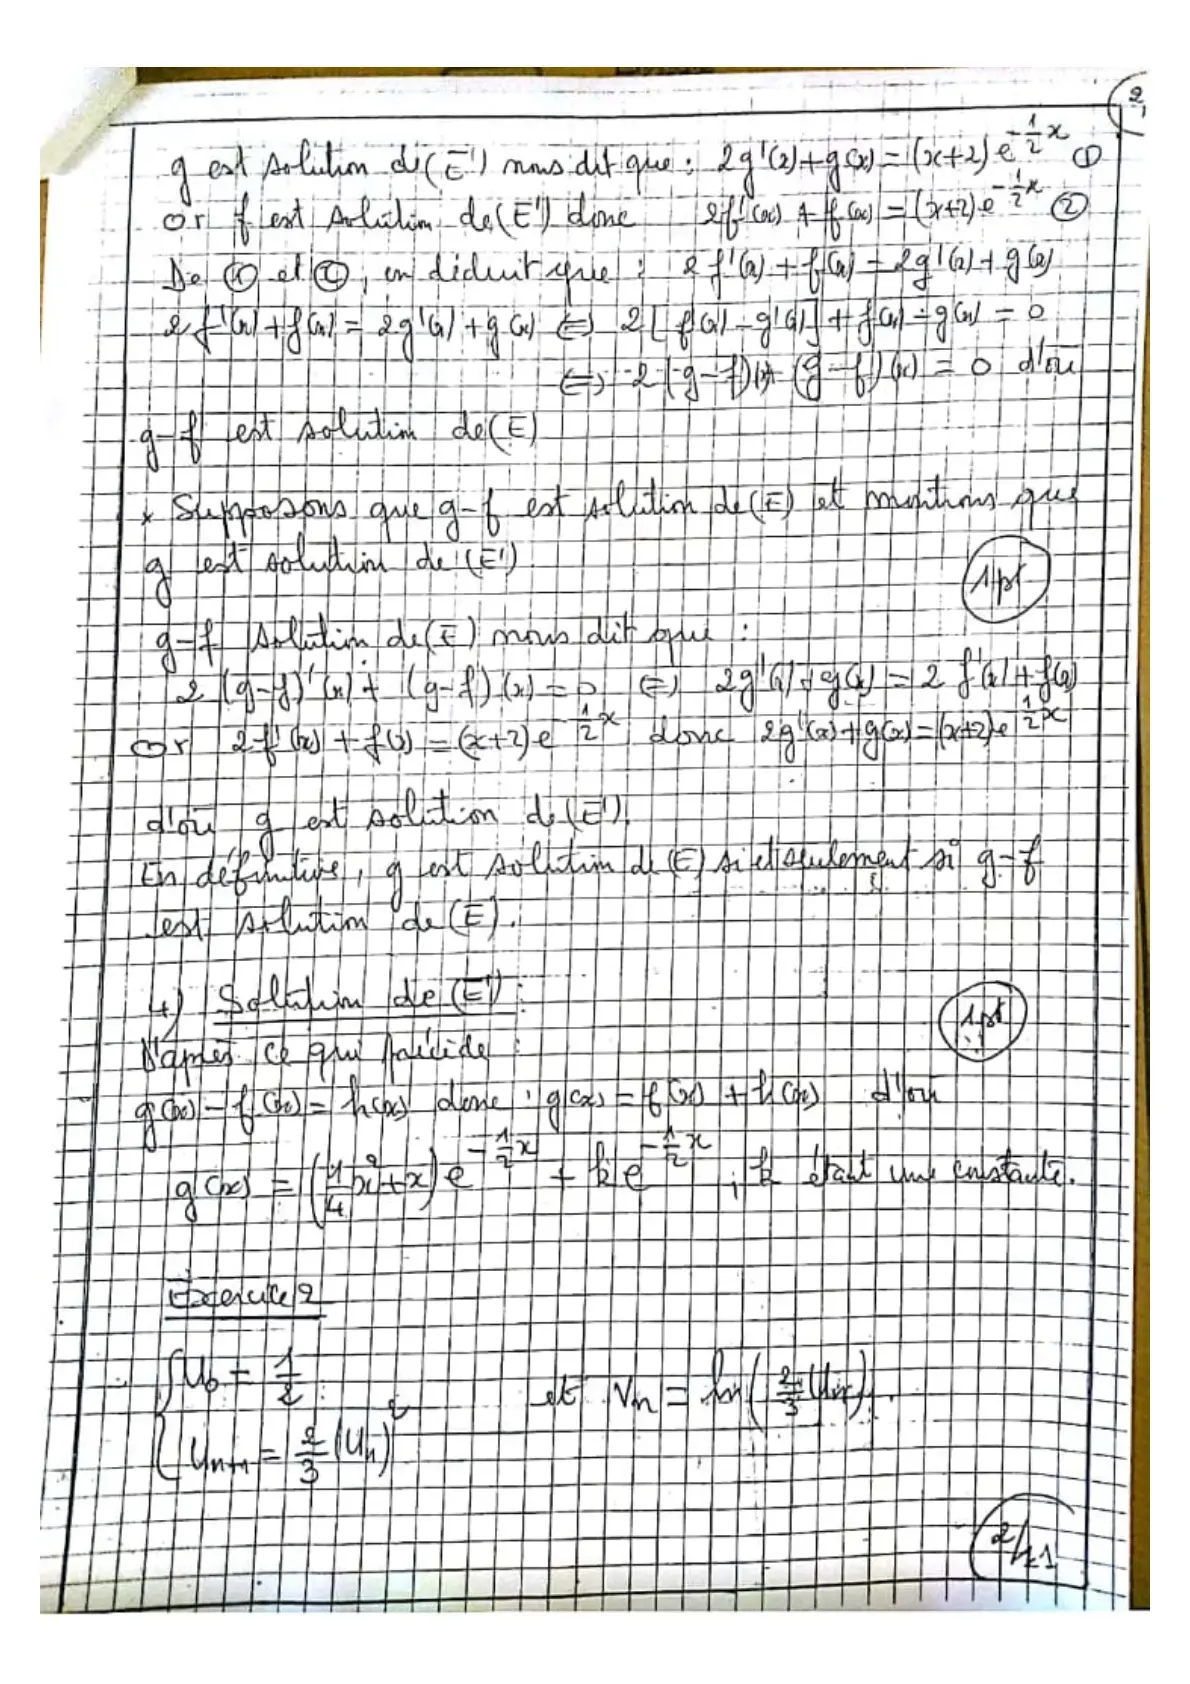 2
g est solution de (E') nous dit que : 2g'(x)+g(x) = (x+2)e^{-1/2 x} ①
or f est solution de (E') donc 2f'(x) + f(x) = (x+2)e^{-1/2 x} ②
De ① et ②, on déduit que : 2f'(x) + f(x) = 2g'(x) + g(x)
2f'(x) + f(x) = 2g'(x) + g(x) ⇔ 2[f(x) - g'(x)] + f(x) - g(x) = 0
⇔ -2(g-f)(x) - (g-f)(x) = 0 d'où
g-f est solution de (E)
* Supposons que g-f est solution de (E) et montrons que
g est solution de (E')
1pt
g-f solution de (E) nous dit que :
2(g-f)'(x) + (g-f)(x) = 0 ⇔ 2g'(x)+g(x) = 2f'(x)+f(x)
or 2f'(x) + f(x) = (x+2)e^{-1/2 x} donc 2g'(x)+g(x) = (x+2)e^{-1/2 x}
d'où g est solution de (E').
En définitive, g est solution de (E) si et seulement si g-f
est solution de (E).
4) Solution de (E') :
1pt
D'après ce qui précède :
g(x) - f(x) = h(x) donc : g(x) = f(x) + h(x) d'où
g(x) = (1/4 x² + x) e^{-1/2 x} + k e^{-1/2 x} , k étant une constante.
Exercice 2
{ U₀ = 1/2 et Vn = ln(2/3 Un).
{ Un+1 = 2/3 (Un)
2/11